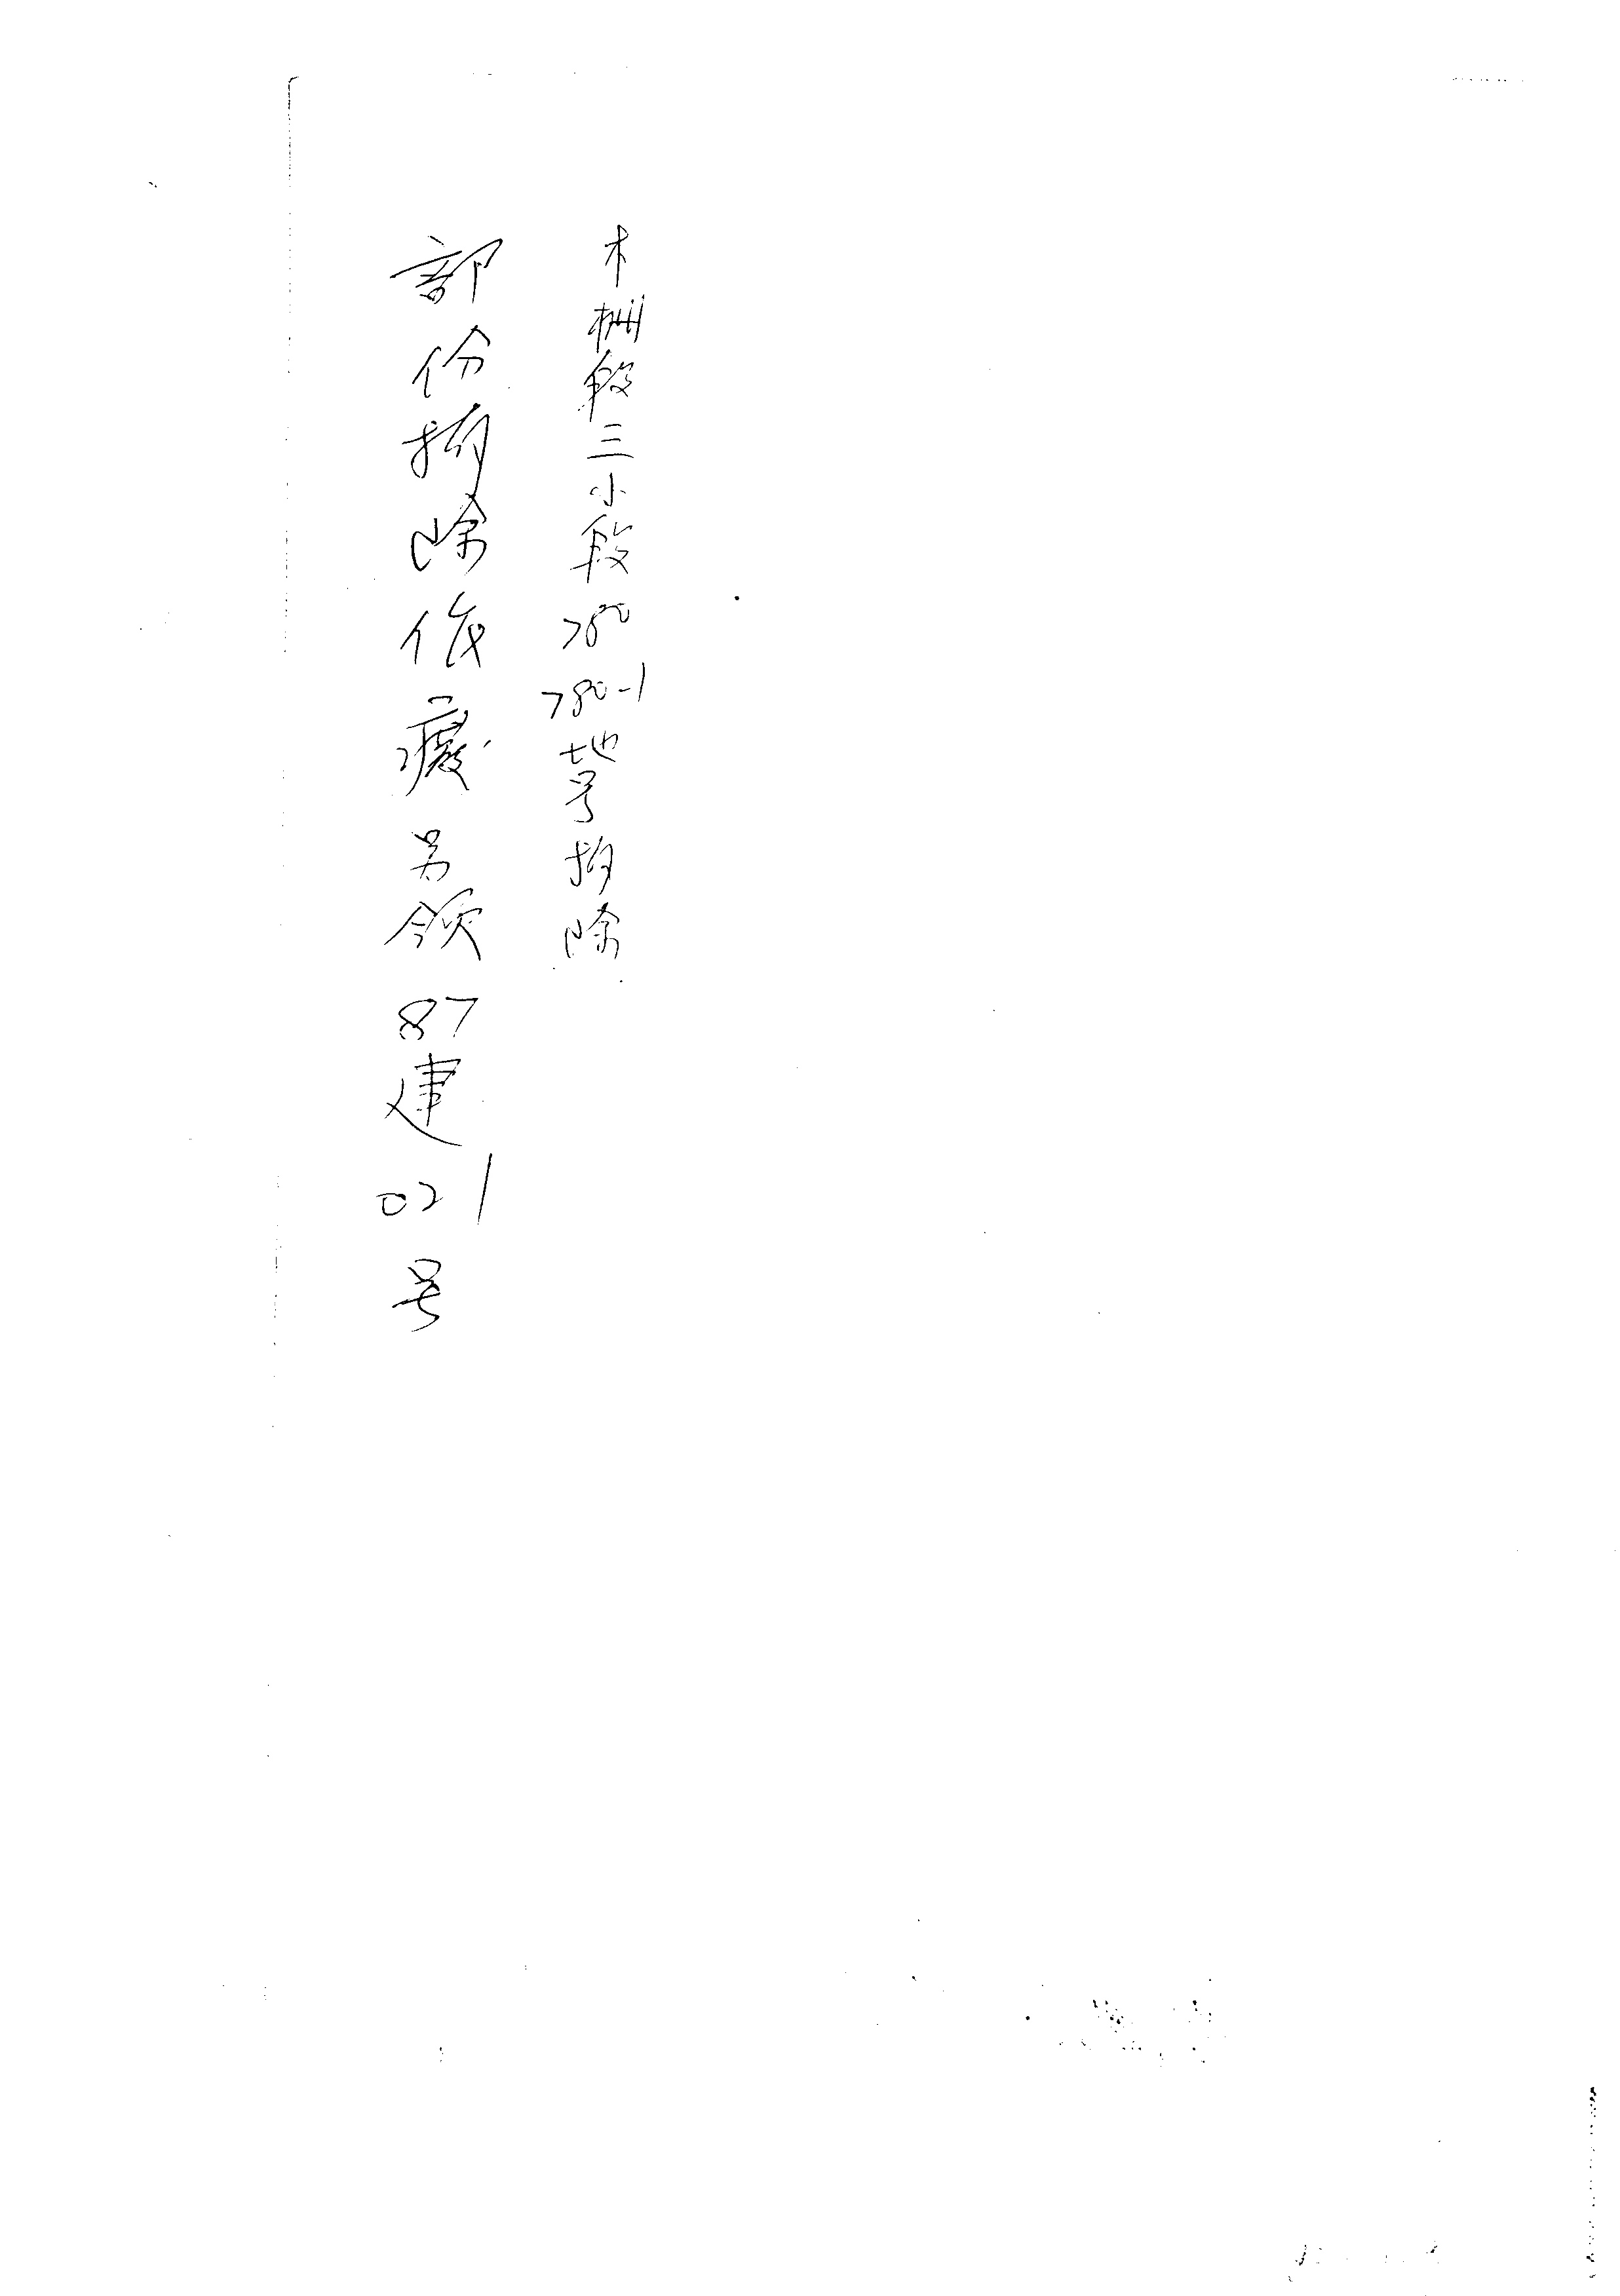 木柵段三小段780 780-1地号拆除
部份拆除作廢另領87建021号